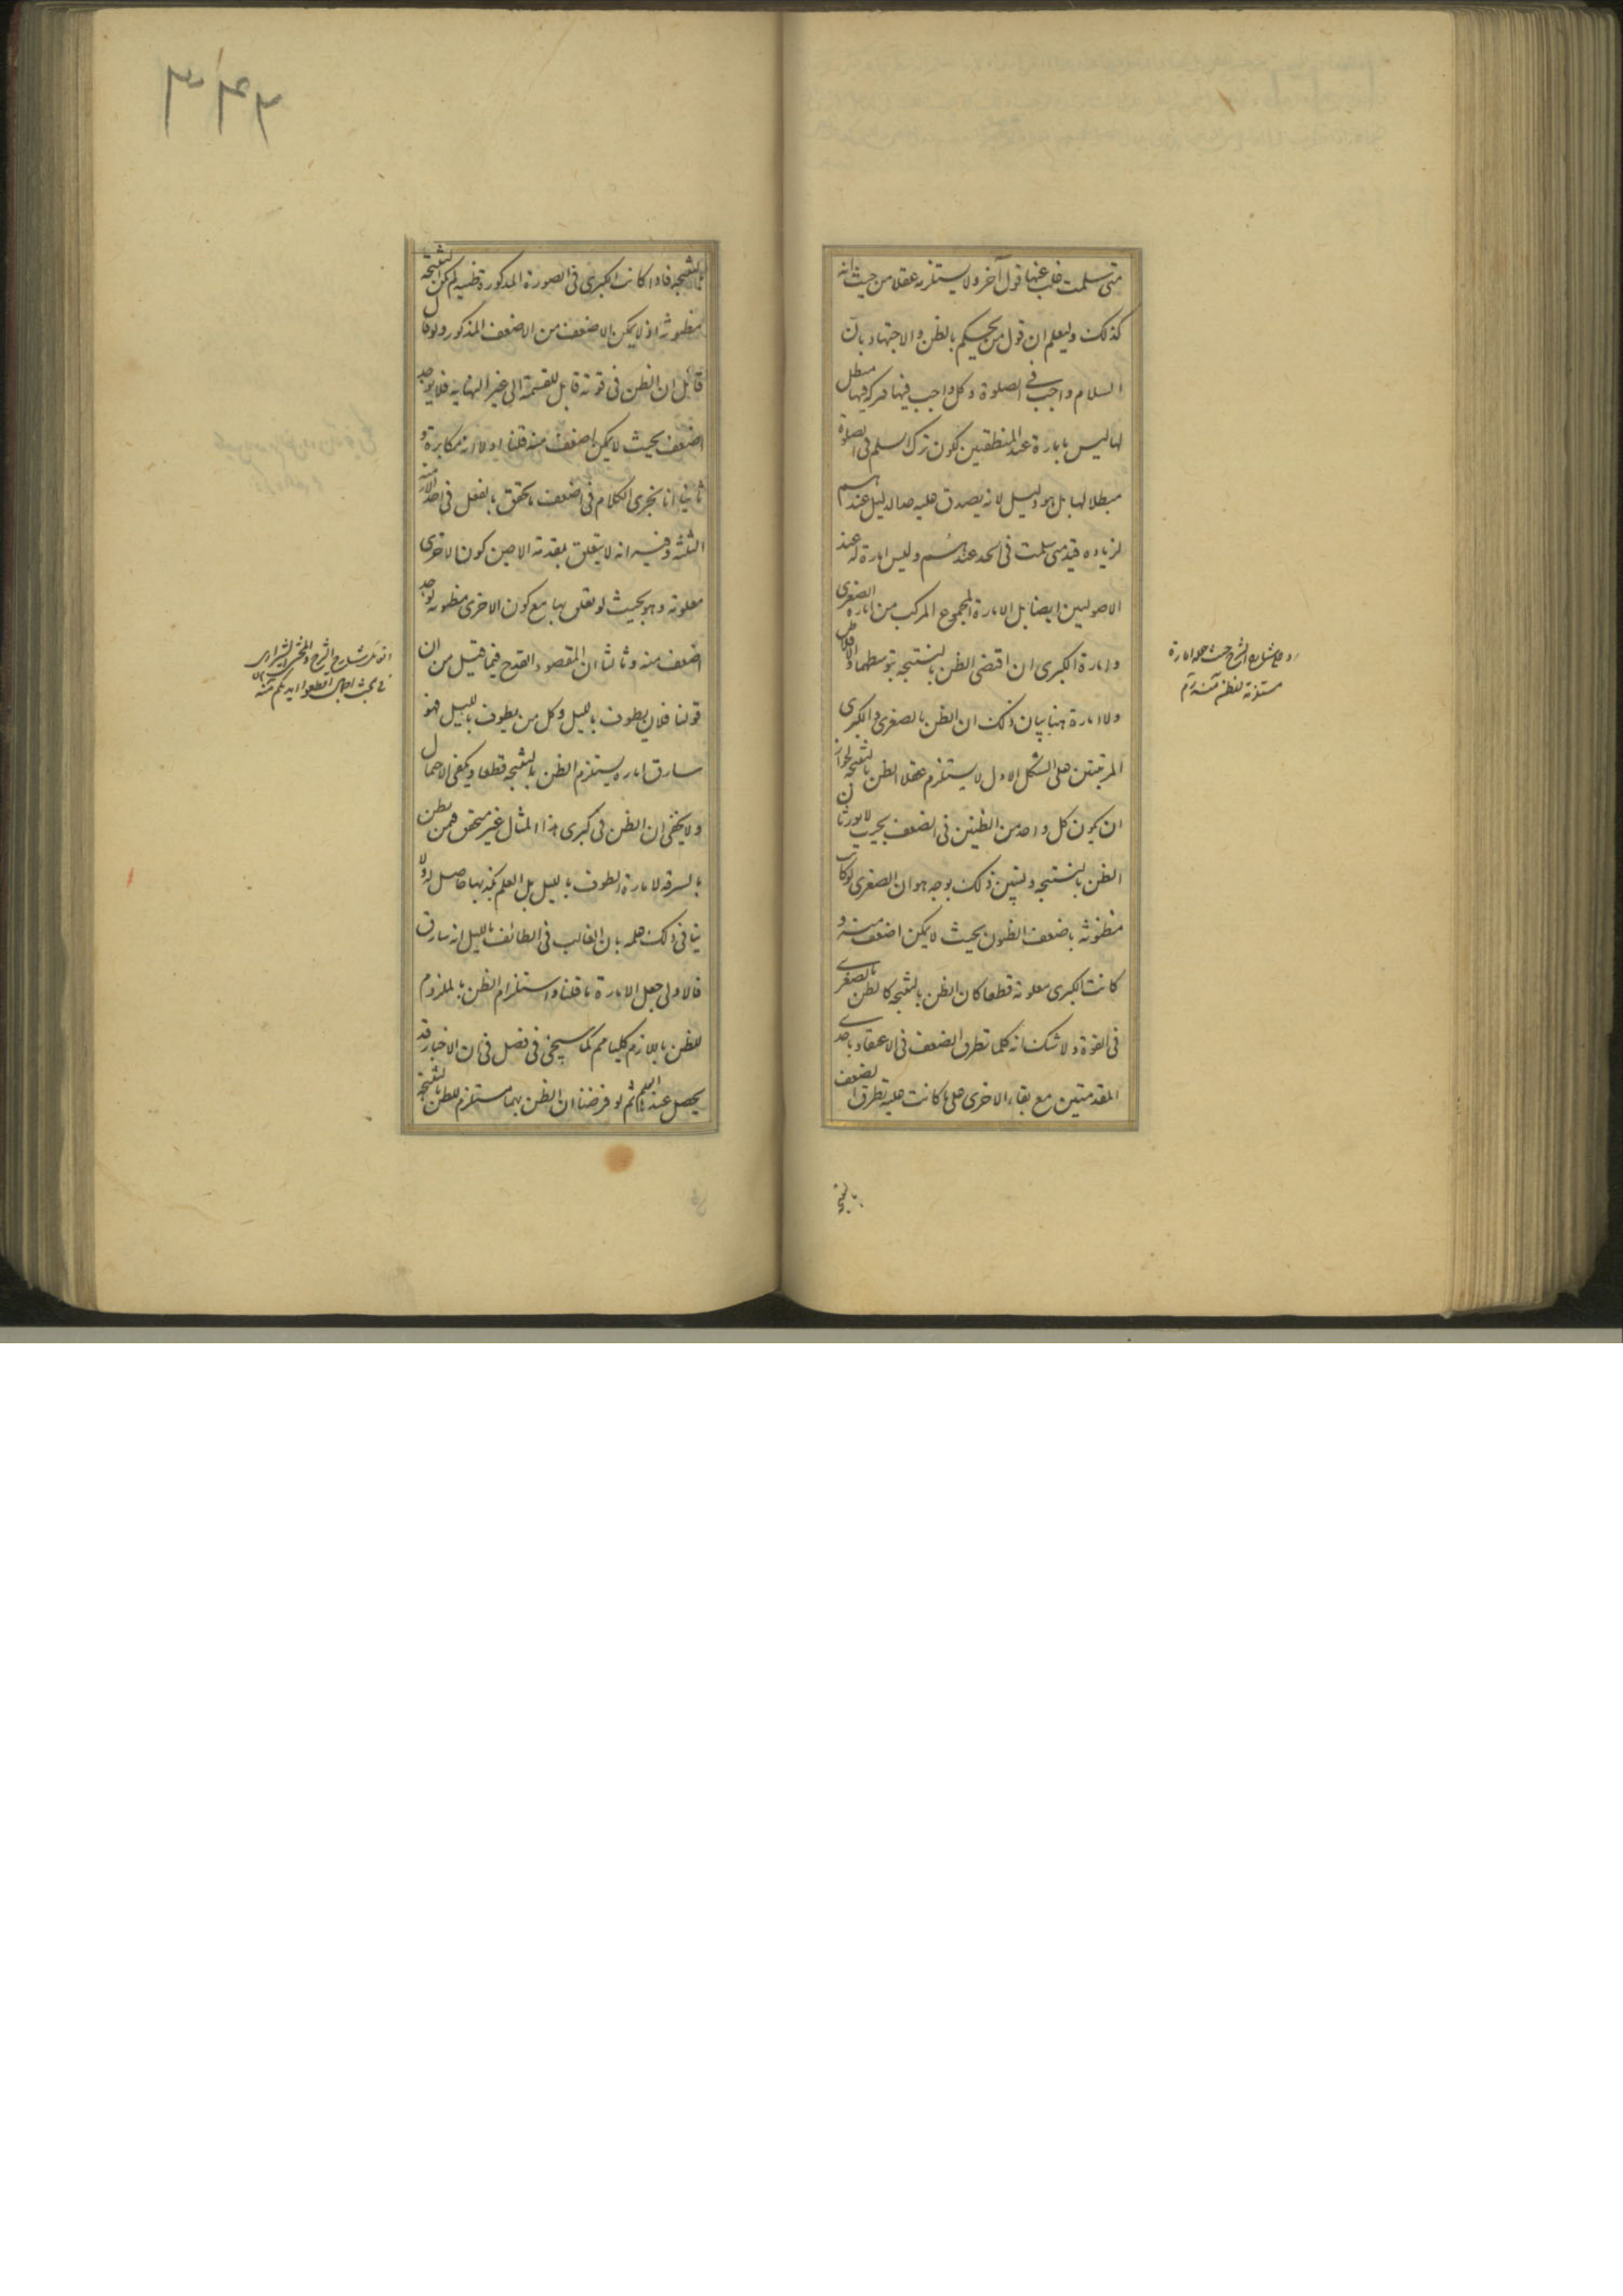 متى سلمت غلب عنها قول آخر ولا يستلزمه عقلا من حيث انه
كذلك وليعلم ان قول من يحكم بالظن والاجتهاد بان
السلام واجب في الصلوة وكل واجب فيها فتركه فيها مبطل
لها ليس بامارة عند المنطقيين لكون ترك السلم في الصلوة
مبطلا لها بل هو دليل لانه يصدق عليه حد الدليل عندهم
لزيادة قيد متى سلمت في الحد عندهم وليس امارة له عند
الاصوليين ايضا بل الامارة المجموع المركب من امارة الصغرى
وامارة الكبرى ان اقتضى الظن بالنتيجة بتوسطهما والا فلا ظن
ولا امارة هنا بيان ذلك ان الظن بالصغرى والكبرى
المرتبتين على الشكل الاول لا يستلزم عقلا الظن بالنتيجة لجواز
ان يكون كل واحد من الظنين في الضعف بحيث لا يورثان
الظن بالنتيجة وليتبين ذلك بوجه هو ان الصغرى لو كانت
مظنونة باضعف الظنون بحيث لا يمكن اضعف منه و
كانت الكبرى معلومة قطعا كان الظن بالنتيجة كالظن بالصغرى
في القوة ولا شك انه كلما تطرق الضعف في الاعتقاد باحدى
المقدمتين مع بقاء الاخرى على ما كانت عليه تطرق الضعف
بالنتيجة
مستلزمة للظن منه
٣٤٣
بالنتيجة فاذا كانت الكبرى في الصورة المذكورة ظنية لم يكن النتيجة
مظنونة اذ لا يمكن الاضعف من الاضعف المذكور ولو قال
قائل ان الظن في قوته قابل للقسمة الى غير النهاية فلا يوجد
اضعف بحيث لا يمكن اضعف منه قلنا اولا انه مكابرة و
ثانيا انا نجرى الكلام في اضعف ما تحقق بالفعل في احد الازمنة
الثلثة وفيه انه لا يتعلق بمقدمة الا حين كون الاخرى
معلومة وهو بحيث لو تعلق بها مع كون الاخرى مظنونة لوجد
اضعف منه وثالثا ان المقصود القدح فيما قيل من ان
قولنا فلان يطوف بالليل وكل من يطوف بالليل فهو
سارق امارة يستلزم الظن بالنتيجة قطعا ويكفي الاحتمال
ولا يخفى ان الظن في كبرى هذا المثال غير متحقق فمن يظن
بالسرقة لامارة الطوف بالليل بل العلم بكذبها حاصل له ولا
ينافى ذلك علمه بان الغالب في الطائف بالليل انه سارق
فالاولى جعل الامارة ما قلنا واستلزام الظن بالملزوم
للظن باللازم كليا مم كما سيجئ في فصل في ان الاخبار قد
يحصل عندها العلم ثم لو فرضنا ان الظن بهما مستلزم للظن بالنتيجة